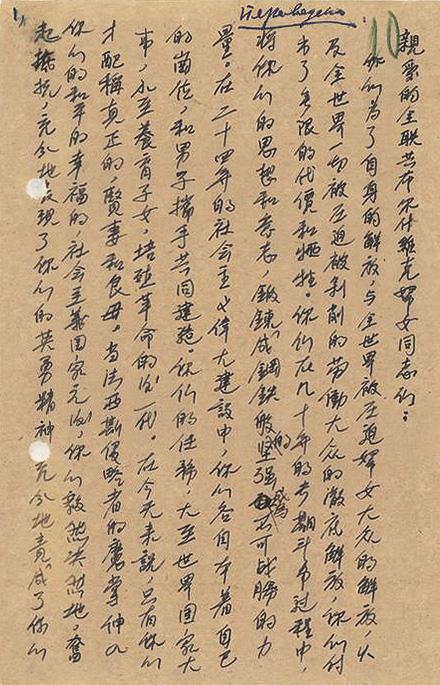 10
親爱的全联共布尔什維克婦女同志们：
你们为了自身的解放，与全世界被压迫婦女大众的解放，以
及全世界一切被压迫被剥削的劳動大众的澈底解放，你们付
出了無限的代價和牺牲。你们在几十年的長期斗争过程中，
将你们的思想和意志，鍛鍊成鋼鉄般的坚强成為不可战勝的力
量。在二十四年的社会主义偉大建設中，你们各自本着自己
的崗位，和男子携手共同建設。你们的任務，大至世界国家大
事，小至養育子女，培殖革命的後一代。在今天来說，只有你们
才配稱真正的賢妻和良母。当法西斯侵略者的魔掌伸入
你们的和平的幸福的社会主義国家元後，你们毅然決然地，奮
起抵抗，充分地表現了你们的英勇精神 充分地責成了你们